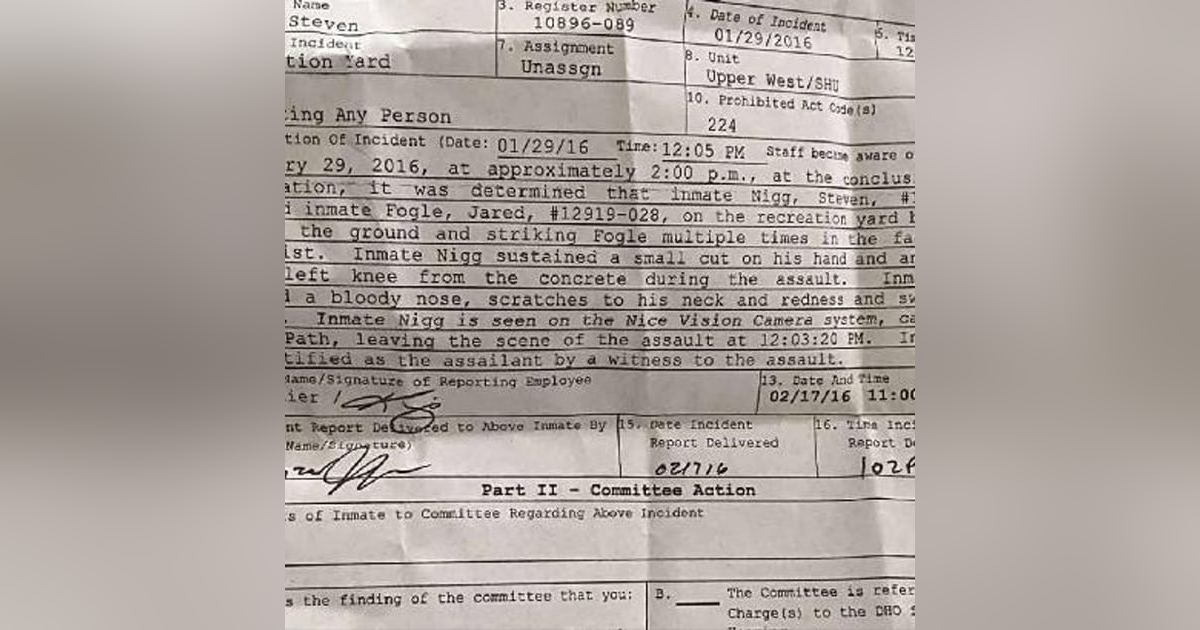 Name 3. Register Number 4. Date of Incident 5. Tim
Steven 10896-089 01/29/2016 12
Incident 7. Assignment 8. Unit
tion Yard Unassgn Upper West/SHU
10. Prohibited Act Code(s)
ing Any Person 224
tion Of Incident (Date: 01/29/16 Time: 12:05 PM Staff became aware o
ry 29, 2016, at approximately 2:00 p.m., at the conclus
ation, it was determined that inmate Nigg, Steven, #1
d inmate Fogle, Jared, #12919-028, on the recreation yard b
the ground and striking Fogle multiple times in the fa
ist. Inmate Nigg sustained a small cut on his hand and an
left knee from the concrete during the assault. Inm
d a bloody nose, scratches to his neck and redness and sw
. Inmate Nigg is seen on the Nice Vision Camera system, ca
Path, leaving the scene of the assault at 12:03:20 PM. In
tified as the assailant by a witness to the assault.
Name/Signature of Reporting Employee 13. Date And Time
ier / 02/17/16 11:00
nt Report Delivered to Above Inmate By 15. Date Incident 16. Time Inci
Name/Signature) Report Delivered Report De
02/7/6 102P
Part II - Committee Action
s of Inmate to Committee Regarding Above Incident
s the finding of the committee that you: B. ____ The Committee is refer
Charge(s) to the DHO